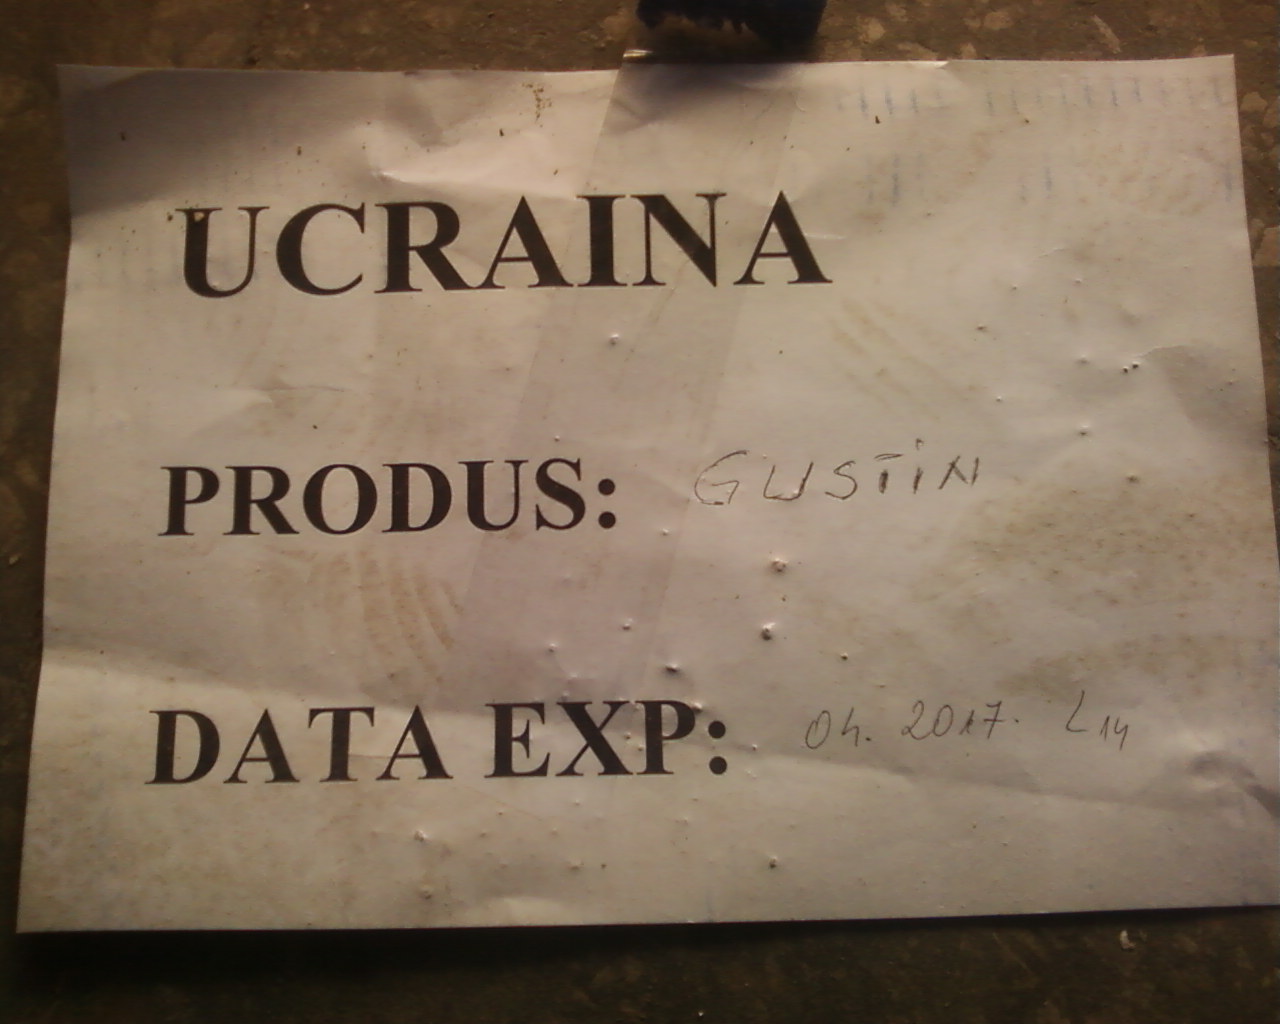 UCRAINA
PRODUS: GUSTIN
DATA EXP: 04. 2017. L14